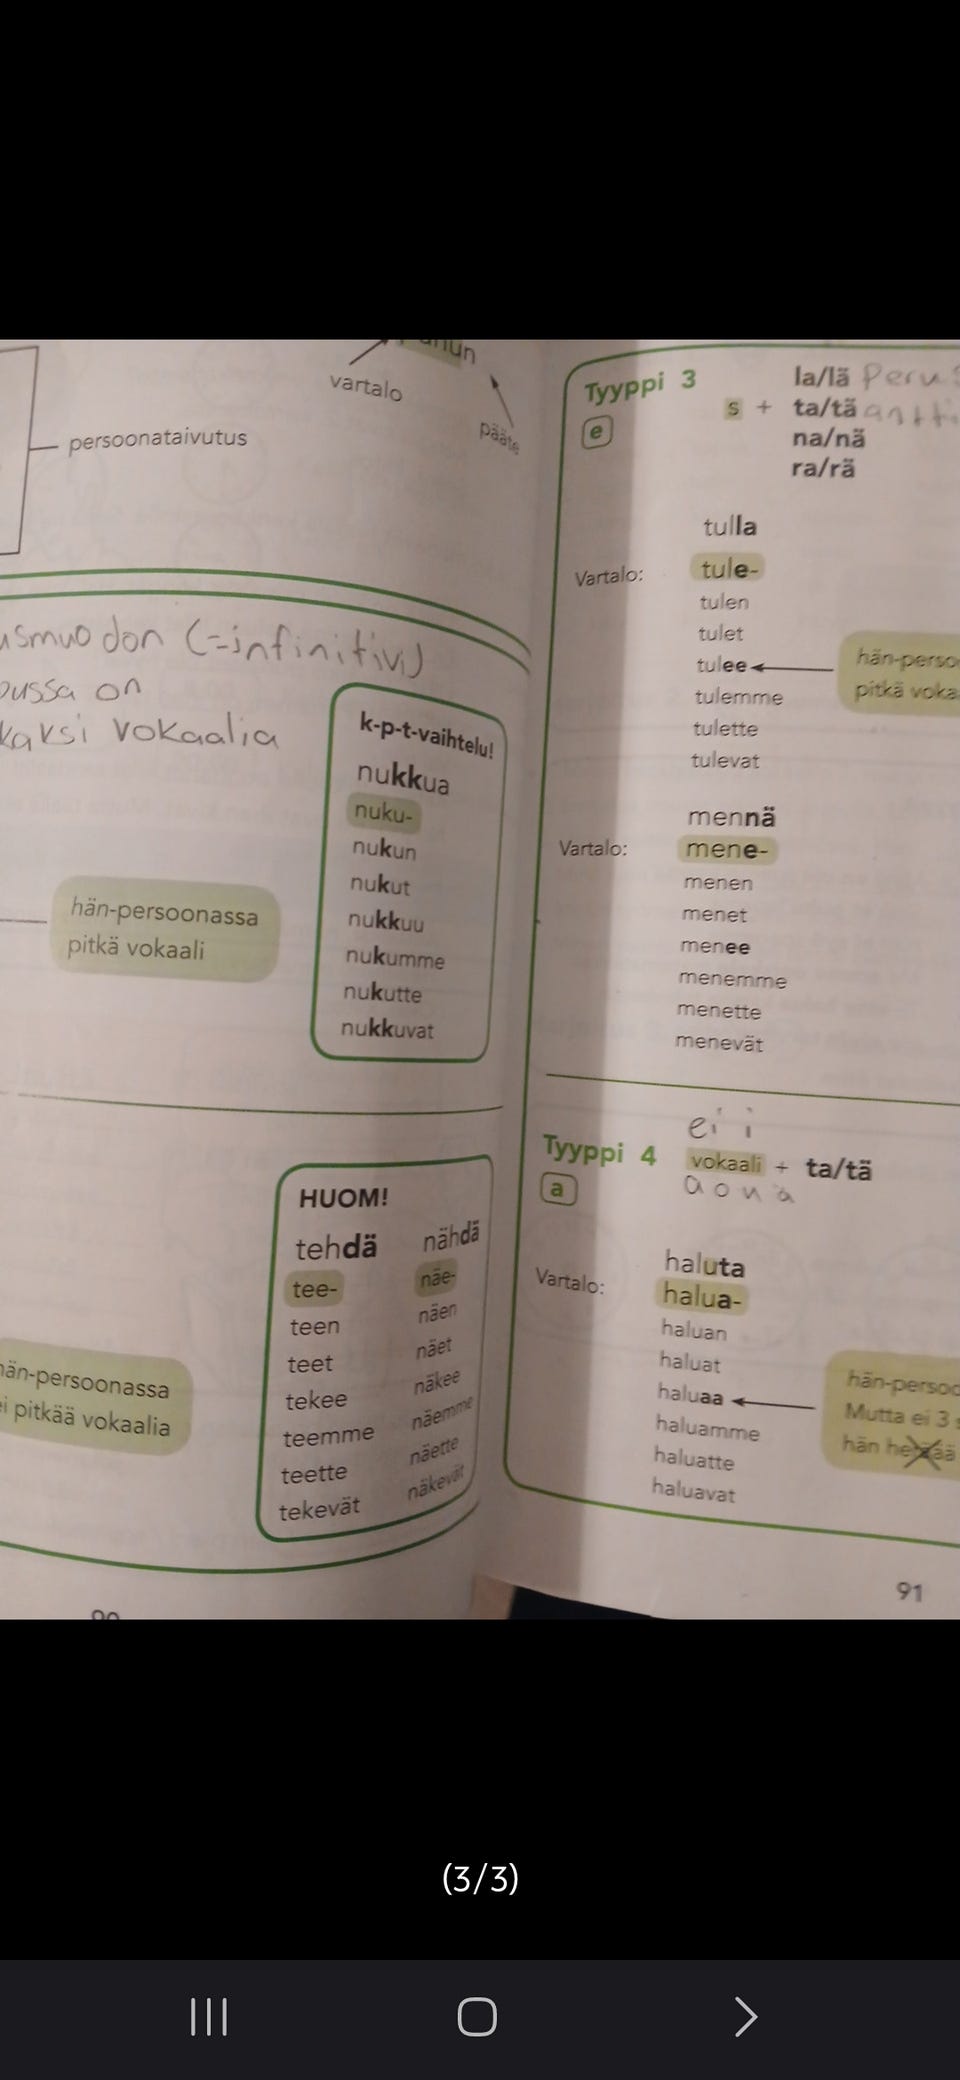 vartalo
pääte
persoonataivutus
(=infinitivi)
on
kaksi vokaalia
k-p-t-vaihtelu!
nukkua
nuku-
nukun
nukut
nukkuu
nukumme
nukutte
nukkuvat
hän-persoonassa
pitkä vokaali
HUOM!
tehdä nähdä
tee- näe-
teen näen
teet näet
tekee näkee
teemme näemme
teette näette
tekevät näkevät
hän-persoonassa
ei pitkää vokaalia
Tyyppi 3
e
la/lä
s + ta/tä
na/nä
ra/rä
tulla
Vartalo: tule-
tulen
tulet
tulee
tulemme
tulette
tulevat
pitkä
mennä
Vartalo: mene-
menen
menet
menee
menemme
menette
menevät
ei i
Tyyppi 4 vokaali + ta/tä
a a o u ä
haluta
Vartalo: halua-
haluan
haluat
haluaa
haluamme
haluatte
haluavat
Mutta ei 3
hän heräää
91
(3/3)